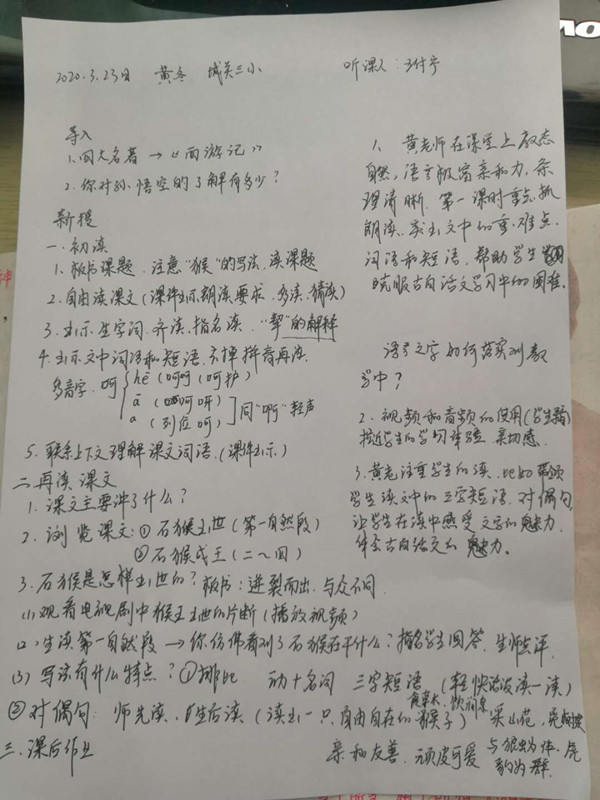 2020.3.23日 黄冬 城关三小 听课人:
导入
1.四大名著→《西游记》
2.你对孙悟空的了解有多少?
新授
一.初读
1.板书课题.注意“猴”的写法,读课题
2.自由读课文(课件出示朗读要求.多读、猜读)
3.出示生字词.齐读.指名读.“挈”的解释
4.出示文中词语和短语.去掉拼音再读.
多音字.呵 hē(呵呵(呵护)
ā(呵呀)
a(到位呵) 同“啊”轻声
5.联系上下文理解课文词语.(课件出示)
二再读课文
1.课文主要讲了什么?
2.浏览课文:①石猴出世(第一自然段)
②石猴成王(二~四)
3.石猴是怎样出世的?板书:迸裂而出.与众不同.
(1)观看电视剧中猴王出世的片断(播放视频)
(2).生读第一自然段→你仿佛看到了石猴在干什么?指名学生回答.生师点评.
(3)写法有什么特点?①排比 动+名词 三字短语(轻快活泼读一读)
食草木、饮涧泉
②对偶句:师先读.生后读(读出一只自由自在的猴子)采山花,觅树果
亲和友善.顽皮可爱 与狼虫为伴.虎
豹为群.
三.课后作业
1、黄老师在课堂上教态
自然,语言极富亲和力,条
理清晰.第一课时重点抓
朗读.求出文中的重.难点.
词语和短语.帮助学生
克服古白话文学习中的困难.
语言文字如何落实到教
学中?
2.视频和音频的使用(学生)
接近学生的学习体验 亲切感.
3.黄老注重学生的读.比如带领
学生读文中的三字短语.对偶句,
让学生在读中感受文字的魅力,
体会古白话文的魅力。